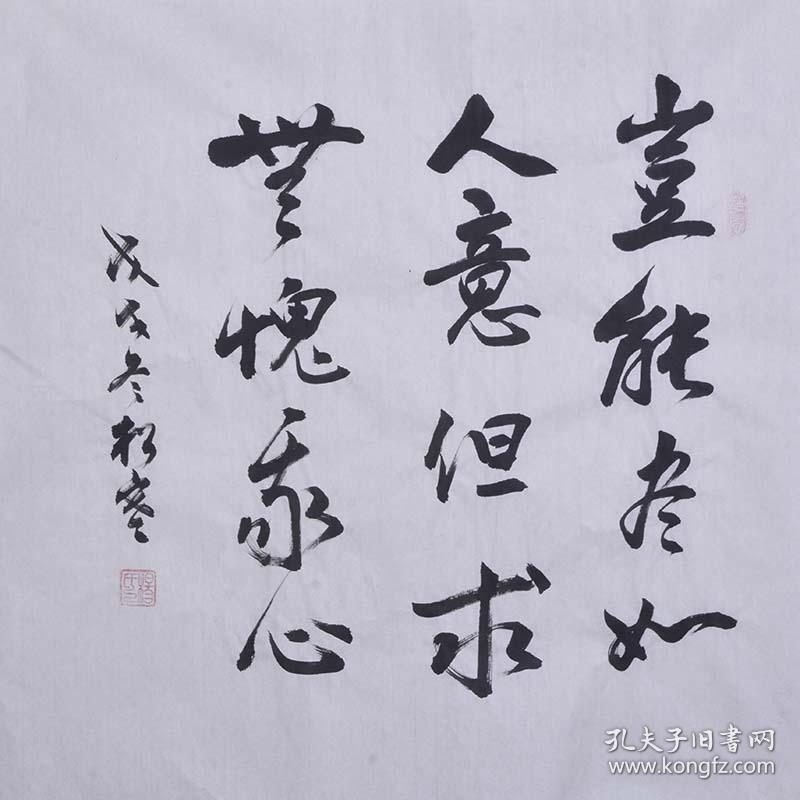 豈能尽如
人意但求
無愧我心
戊戌冬松寒
孔夫子旧书网
www.kongfz.com